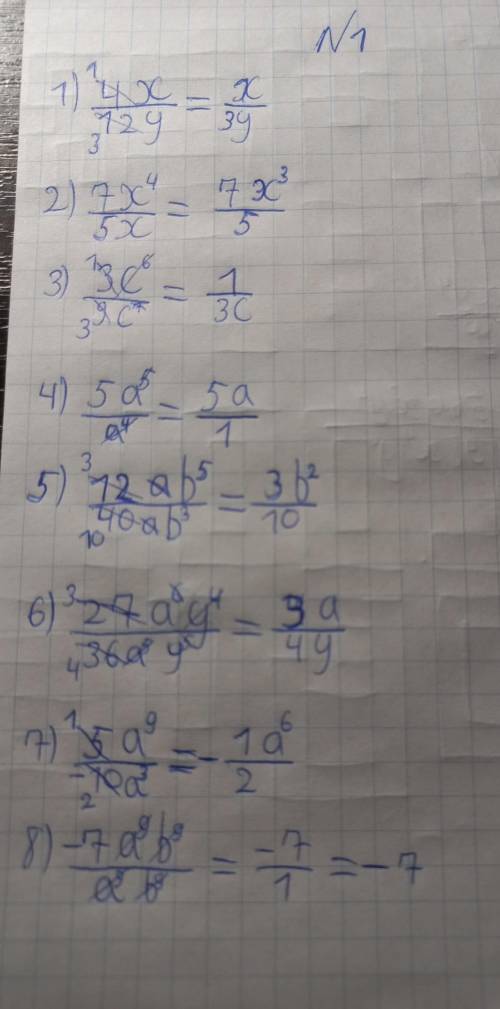 N1
1) 4x/12y = x/3y
2) 7x⁴/5x = 7x³/5
3) 3c⁶/9c⁷ = 1/3c
4) 5a⁵/a⁴ = 5a/1
5) 12ab⁵/40ab³ = 3b²/10
6) 27a y⁴/36a y = 3a/4y
7) 5a⁹/-10a³ = -1a⁶/2
8) -7a⁹b⁹/a b = -7/1 = -7